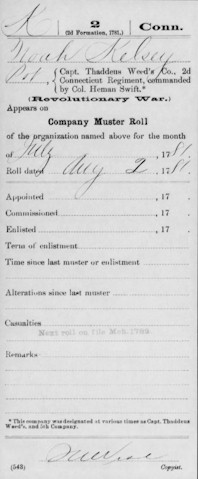 K 2 Conn.
(2d Formation, 1781.)
Noah Kelsey
Pvt, { Capt. Thaddeus Weed's Co., 2d
Connecticut Regiment, commanded
by Col. Heman Swift.*
(Revolutionary War.)
Appears on
Company Muster Roll
of the organization named above for the month
of July, 1781.
Roll dated Aug 2, 1781.
Appointed, 17 .
Commissioned, 17 .
Enlisted, 17 .
Term of enlistment
Time since last muster or enlistment
Alterations since last muster
Casualties
Next roll on file Mch. 1782
Remarks
* This company was designated at various times as Capt. Thaddeus
Weed's, and 5th Company.
(543) Copyist.